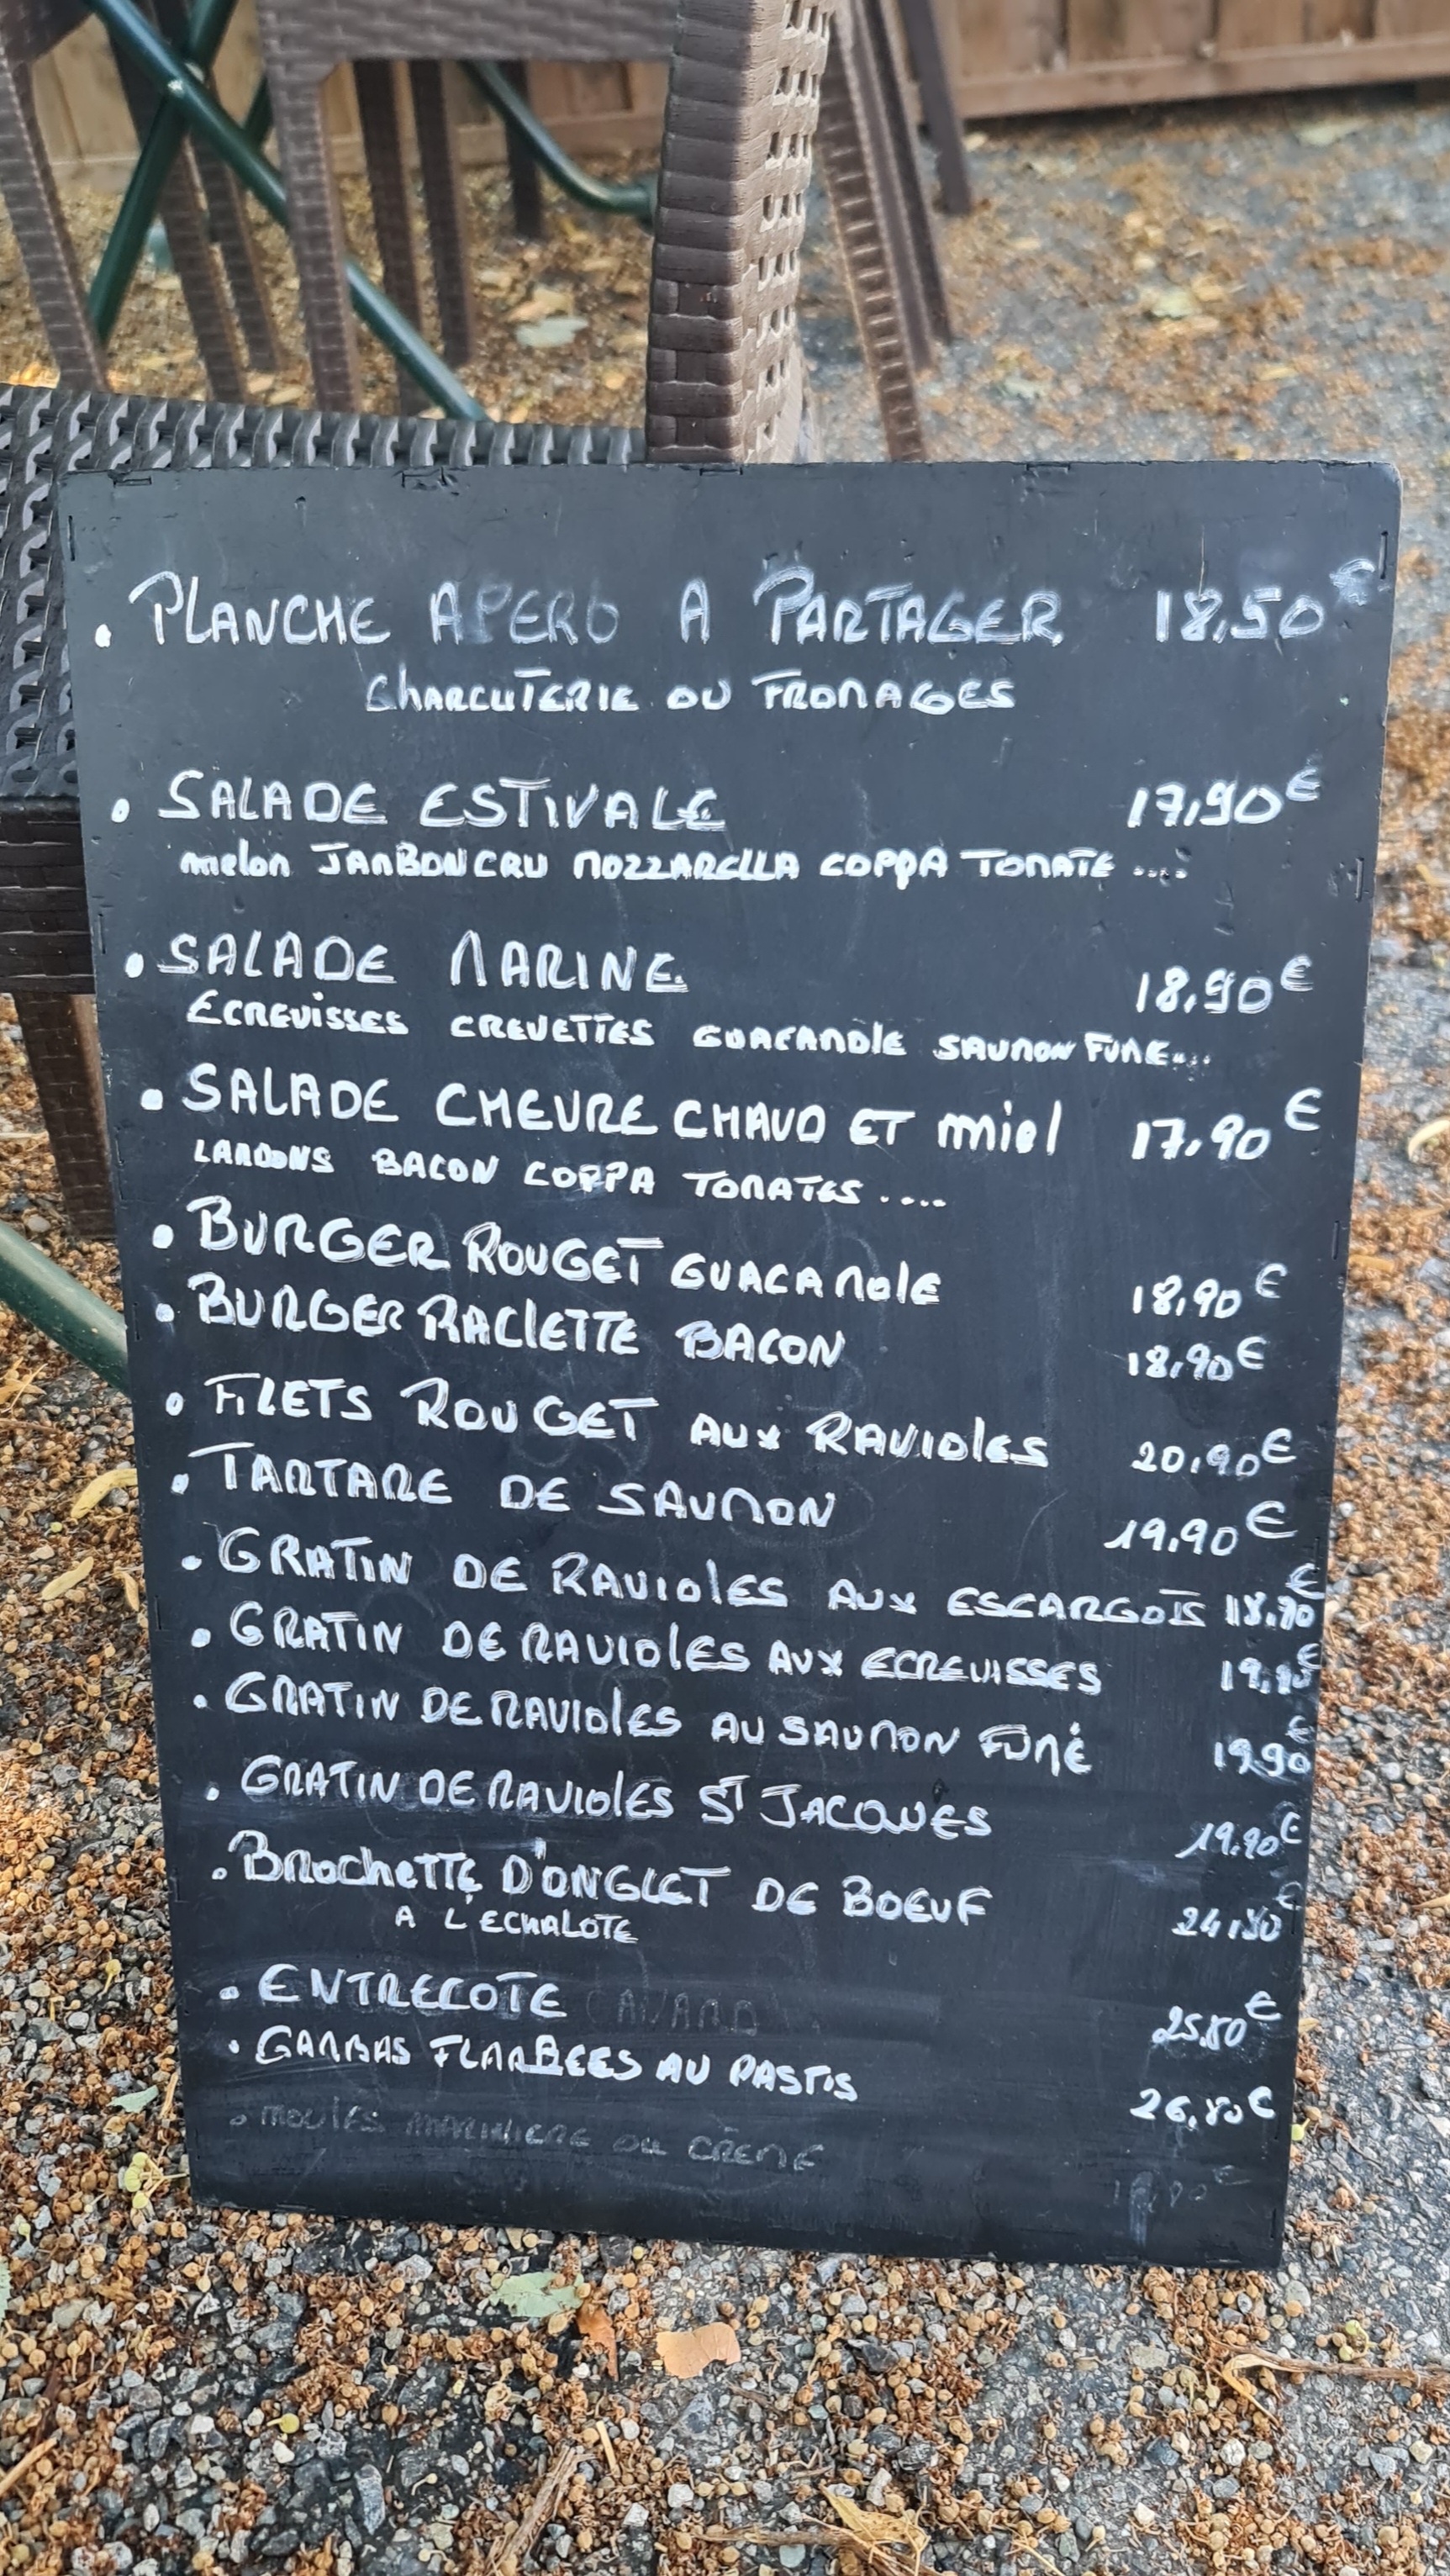 • PLANCHE APERO A PARTAGER 18,50€
CHARCUTERIE OU FROMAGES
• SALADE ESTIVALE 17,90€
melon JAMBON CRU MOZZARELLA COPPA TOMATE ....
• SALADE MARINE 18,90€
ECREVISSES CREVETTES GUACAMOLE SAUMON FUME....
• SALADE CHEVRE CHAUD ET miel 17,90€
LARDONS BACON COPPA TOMATES ....
• BURGER ROUGET GUACAMOLE 18,90€
• BURGER RACLETTE BACON 18,90€
• FILETS ROUGET AUX RAVIOLES 20,90€
• TARTARE DE SAUMON 19,90€
• GRATIN DE RAVIOLES AUX ESCARGOTS 18,90€
• GRATIN DE RAVIOLES AUX ECREVISSES 19,90€
• GRATIN DE RAVIOLES AU SAUMON FUMÉ 19,90€
• GRATIN DE RAVIOLES ST JACQUES 19,90€
• BROCHETTE D'ONGLET DE BOEUF
A L'ECHALOTE
• ENTRECOTE 25,80€
• GAMBAS FLAMBEES AU PASTIS 26,80€
• MOULES MARINIERE OU CREME